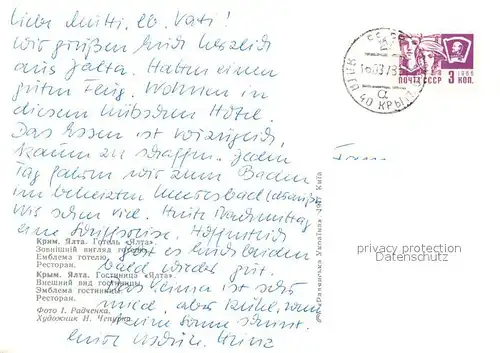 Liebe Mutti, lb. Vati!
Wir grüßen Euch herzlich
aus Jalta. Hatten einen
guten Flug. Wohnen in
diesem hübschen Hotel.
Das Essen ist vorzüglich,
kaum zu schaffen. Jeden
Tag gehen wir zum Baden
im beheizten Meeresbad
Wir sehen viel. Heute Nachmittag
eine Schiffsreise. Hoffentlich
geht es Euch beiden
bald wieder gut.
Das Klima ist sehr
mild, aber kühl, wenn
keine Sonne scheint.
Eure Heinz
Крим. Ялта. Готель „Ялта".
Зовнішній вигляд готелю.
Емблема готелю.
Ресторан.
Крым. Ялта. Гостиница «Ялта».
Внешний вид гостиницы.
Эмблема гостиницы.
Ресторан.
Фото І. Радченка.
Художник Н. Чепурна.
«Радянська Україна» Київ
ПОЧТА СССР 3 КОП.
1966
ЯЛТА 40 КРЫМ
privacy protection
Datenschutz